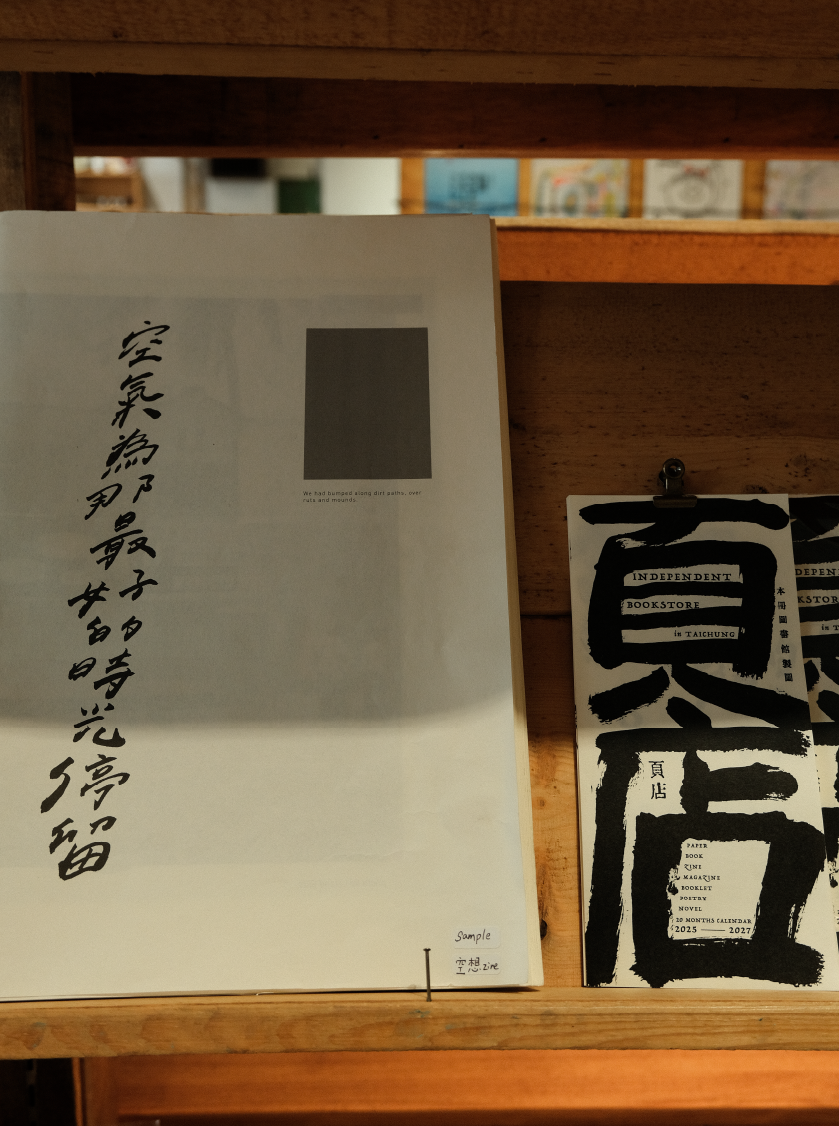 空氣為那最好的時光停留
We had bumped along dirt paths, over
ruts and mounds.
Sample
空想.zine
頁店
INDEPENDENT
BOOKSTORE
in TAICHUNG
本冊圖書館製圖
頁店
PAPER
BOOK
ZINE
MAGAZINE
BOOKLET
POETRY
NOVEL
20 MONTHS CALENDAR
2025 — 2027